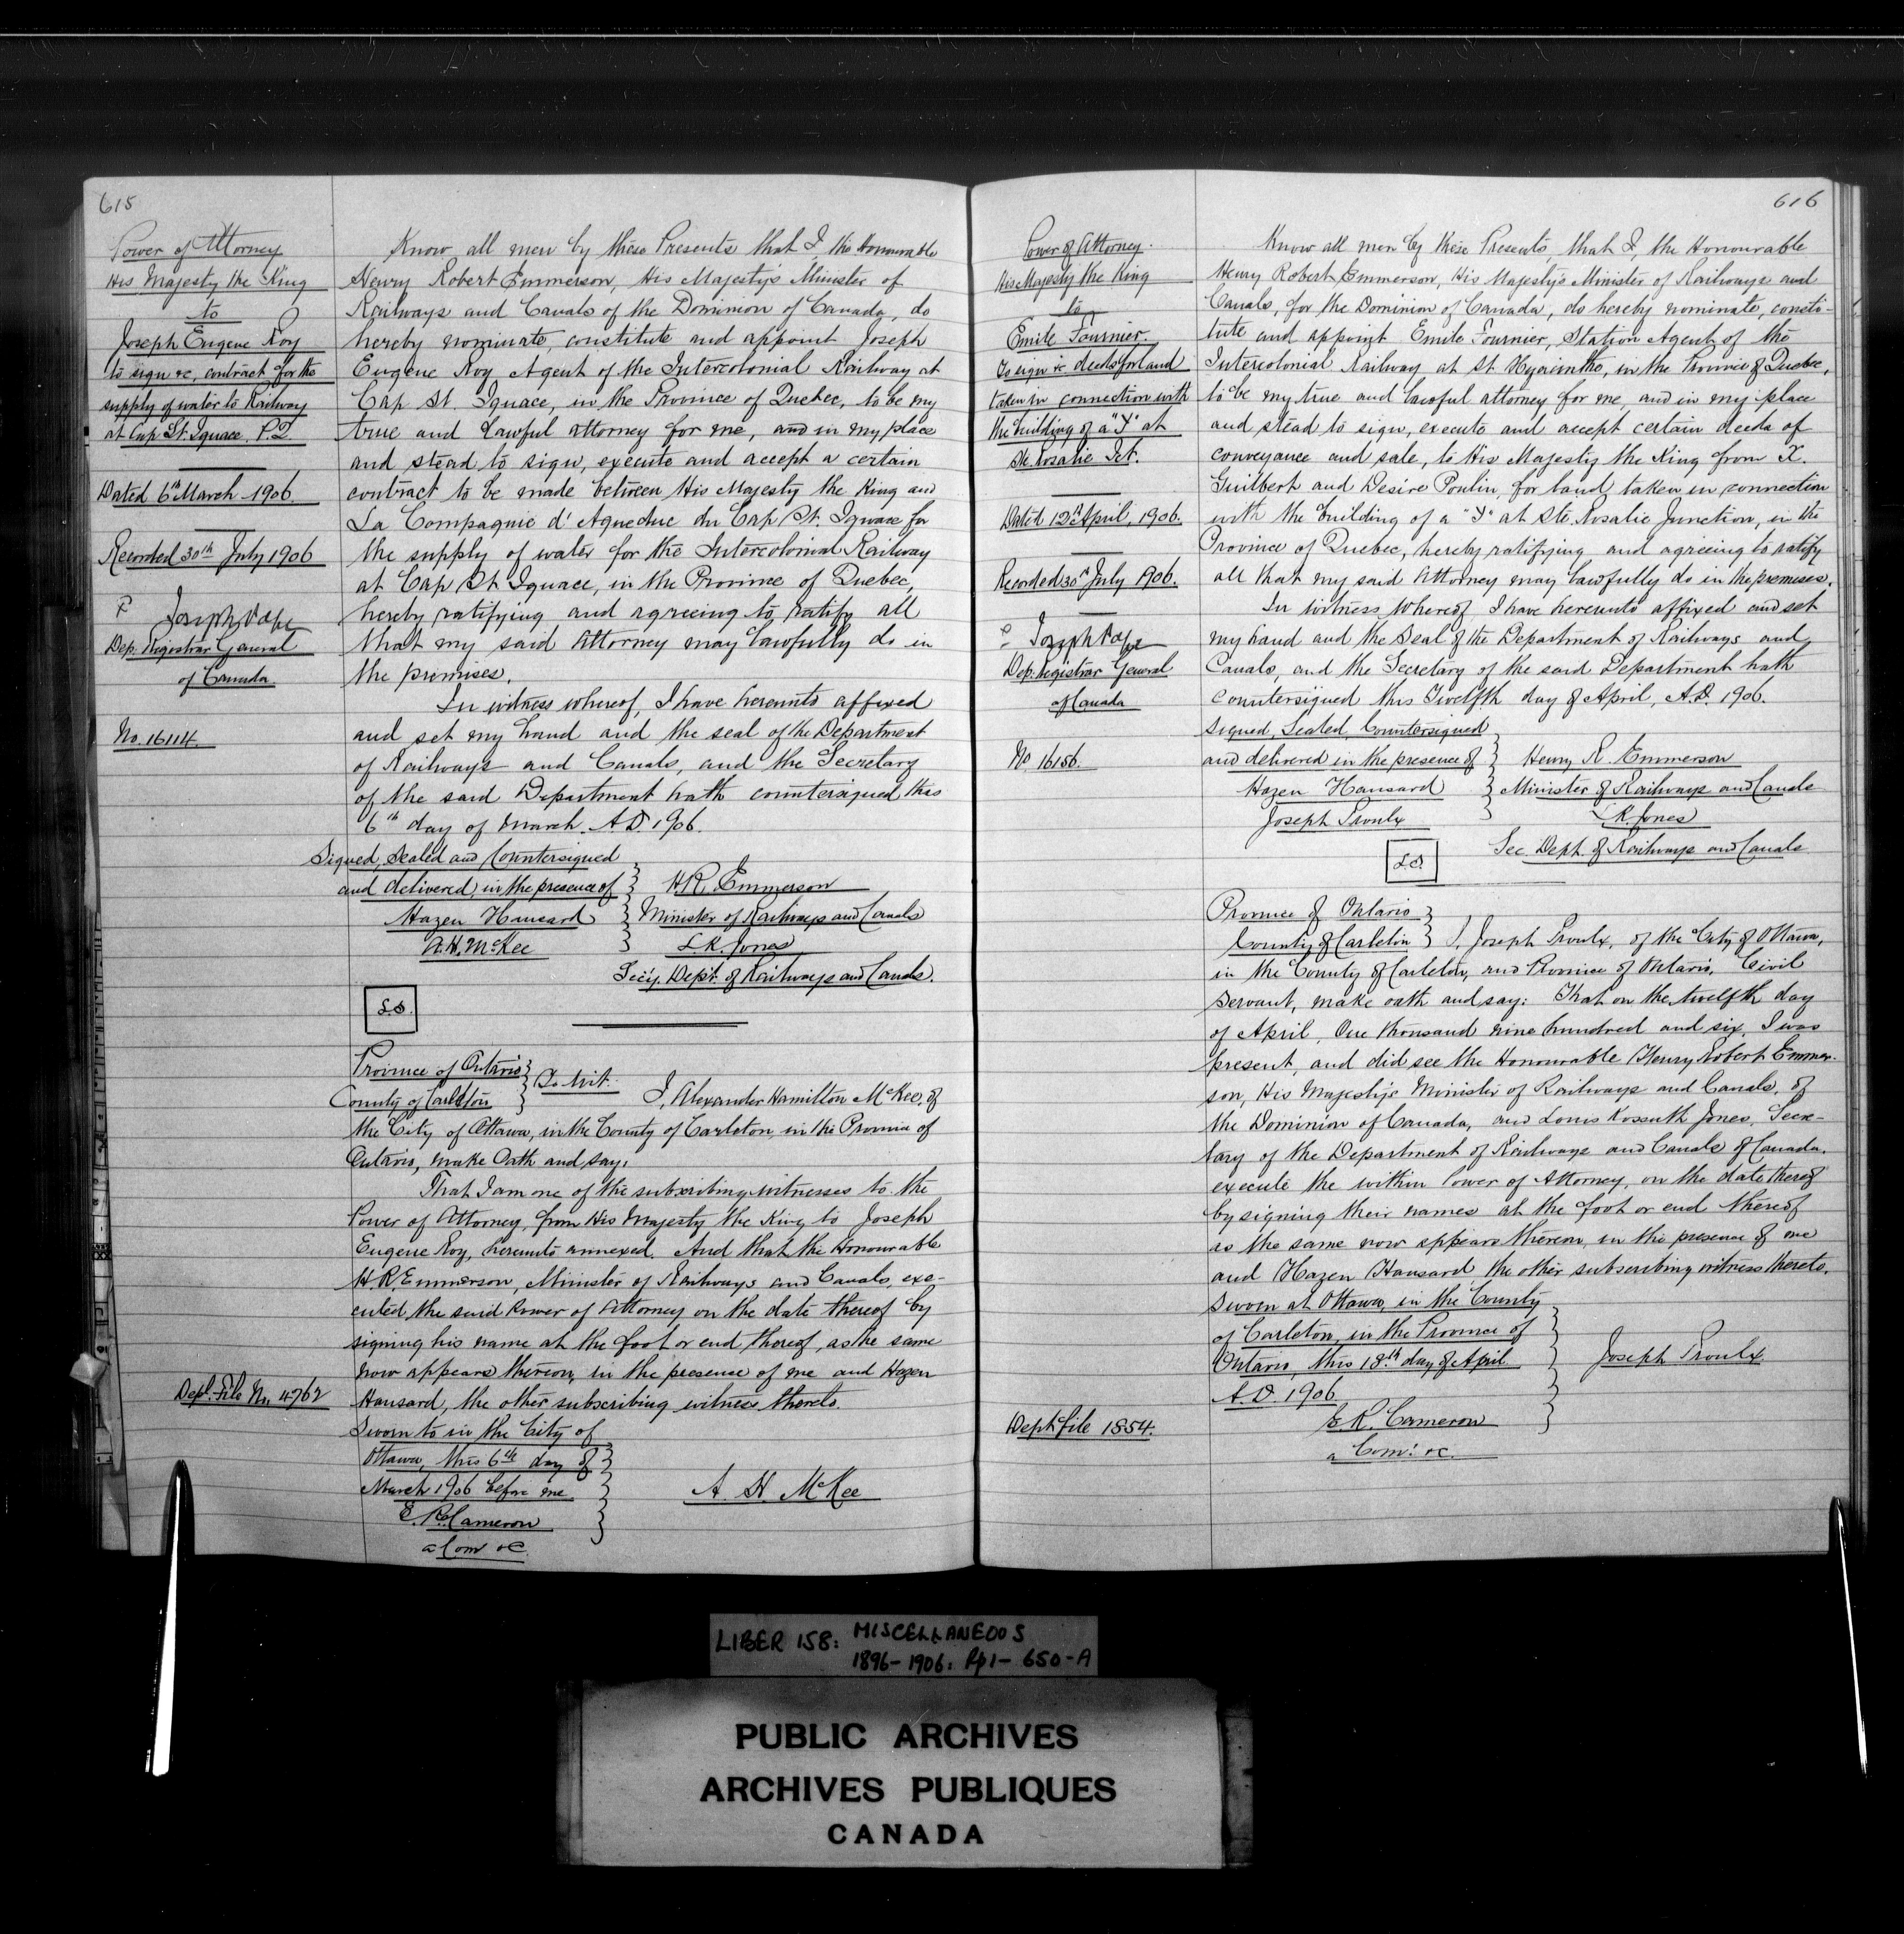 615
Power of Attorney
His Majesty the King
to
Joseph Eugene Roy
to sign &c, contract for the
supply of water to Railway
at Cap St. Ignace, P.Q.
Dated 6th March 1906.
Recorded 30th July 1906
Joseph Pope
Dep. Registrar General
of Canada
No. 16114.
Dept. File No. 4762
Know all men by these Presents that I, the Honourable
Henry Robert Emmerson, His Majesty's Minister of
Railways and Canals of the Dominion of Canada, do
hereby nominate, constitute and appoint Joseph
Eugene Roy Agent of the Intercolonial Railway at
Cap St. Ignace, in the Province of Quebec, to be my
true and Lawful attorney for me, and in my place
and stead to sign, execute and accept a certain
contract to be made between His Majesty the King and
La Compagnie d' Aqueduc du Cap St. Ignace for
the supply of water for the Intercolonial Railway
at Cap St Ignace, in the Province of Quebec,
hereby ratifying and agreeing to ratify all
that my said Attorney may lawfully do in
the premises.
In witness whereof, I have hereunto affixed
and set my hand and the seal of the Department
of Railways and Canals, and the Secretary
of the said Department hath countersigned this
6th day of March. A.D. 1906.
Signed, Sealed and Countersigned
and delivered, in the presence of } H.R. Emmerson
Hazen Hansard } Minister of Railways and Canals
A.H. McKee } L.K. Jones
Sec'y. Dep't. of Railways and Canals.
L.S.
Province of Ontario }
County of Carleton } To Wit: I, Alexander Hamilton McKee, of
the City of Ottawa, in the County of Carleton, in the Province of
Ontario, make Oath and say:
That I am one of the subscribing witnesses to the
Power of Attorney, from His Majesty the King to Joseph
Eugene Roy, hereunto annexed. And that the Honourable
H.R. Emmerson, Minister of Railways and Canals, exe-
cuted the said Power of Attorney on the date thereof by
signing his name at the foot or end thereof, as the same
now appears thereon, in the presence of me and Hazen
Hansard, the other subscribing witness thereto.
Sworn to in the City of
Ottawa, this 6th day of }
March 1906 before me } A. H. McKee
E. R. Cameron }
a Com &c.
616
Power of Attorney.
His Majesty the King
to
Emile Fournier.
To sign &c deeds for land
taken in connection with
the building of a "Y" at
Ste. Rosalie Jct.
Dated 12th April, 1906.
Recorded 30th July 1906.
Joseph Pope
Dep. Registrar General
of Canada
No. 16156.
Dept. file 1854.
Know all men by these Presents, that I, the Honourable
Henry Robert Emmerson, His Majesty's Minister of Railways and
Canals, for the Dominion of Canada, do hereby nominate, consti-
tute and appoint Emile Fournier, Station Agent of the
Intercolonial Railway at St. Hyacinthe, in the Province of Quebec,
to be my true and lawful attorney for me, and in my place
and stead to sign, execute and accept certain deeds of
conveyance and sale, to His Majesty the King from X.
Guilbert and Desire Poulin, for land taken in connection
with the building of a "Y" at Ste. Rosalie Junction, in the
Province of Quebec, hereby ratifying and agreeing to ratify
all that my said Attorney may lawfully do in the premises.
In witness whereof I have hereunto affixed and set
my hand and the Seal of the Department of Railways and
Canals, and the Secretary of the said Department hath
countersigned this Twelfth day of April, A.D. 1906.
Signed, Sealed, Countersigned
and delivered in the presence of } Henry R. Emmerson
Hazen Hansard } Minister of Railways and Canals
Joseph Proulx } L.K. Jones
Sec. Dept. of Railways and Canals
L.S.
Province of Ontario }
County of Carleton } I, Joseph Proulx, of the City of Ottawa,
in the County of Carleton, and Province of Ontario, Civil
Servant, make oath and say: That on the twelfth day
of April, One thousand nine hundred and six, I was
present, and did see the Honourable Henry Robert Emmer-
son, His Majesty's Minister of Railways and Canals, of
the Dominion of Canada, and Louis Kossuth Jones, Secre-
tary of the Department of Railways and Canals of Canada,
execute the within Power of Attorney, on the date thereof
by signing their names at the foot or end thereof
as the same now appears thereon, in the presence of me
and Hazen Hansard the other subscribing witness thereto.
Sworn at Ottawa, in the County
of Carleton, in the Province of
Ontario, this 18th day of April } Joseph Proulx
A.D. 1906
E.R. Cameron
a Com: &c.
LIBER 158: MISCELLANEOUS
1896-1906: Pp 1-650-A
PUBLIC ARCHIVES
ARCHIVES PUBLIQUES
CANADA